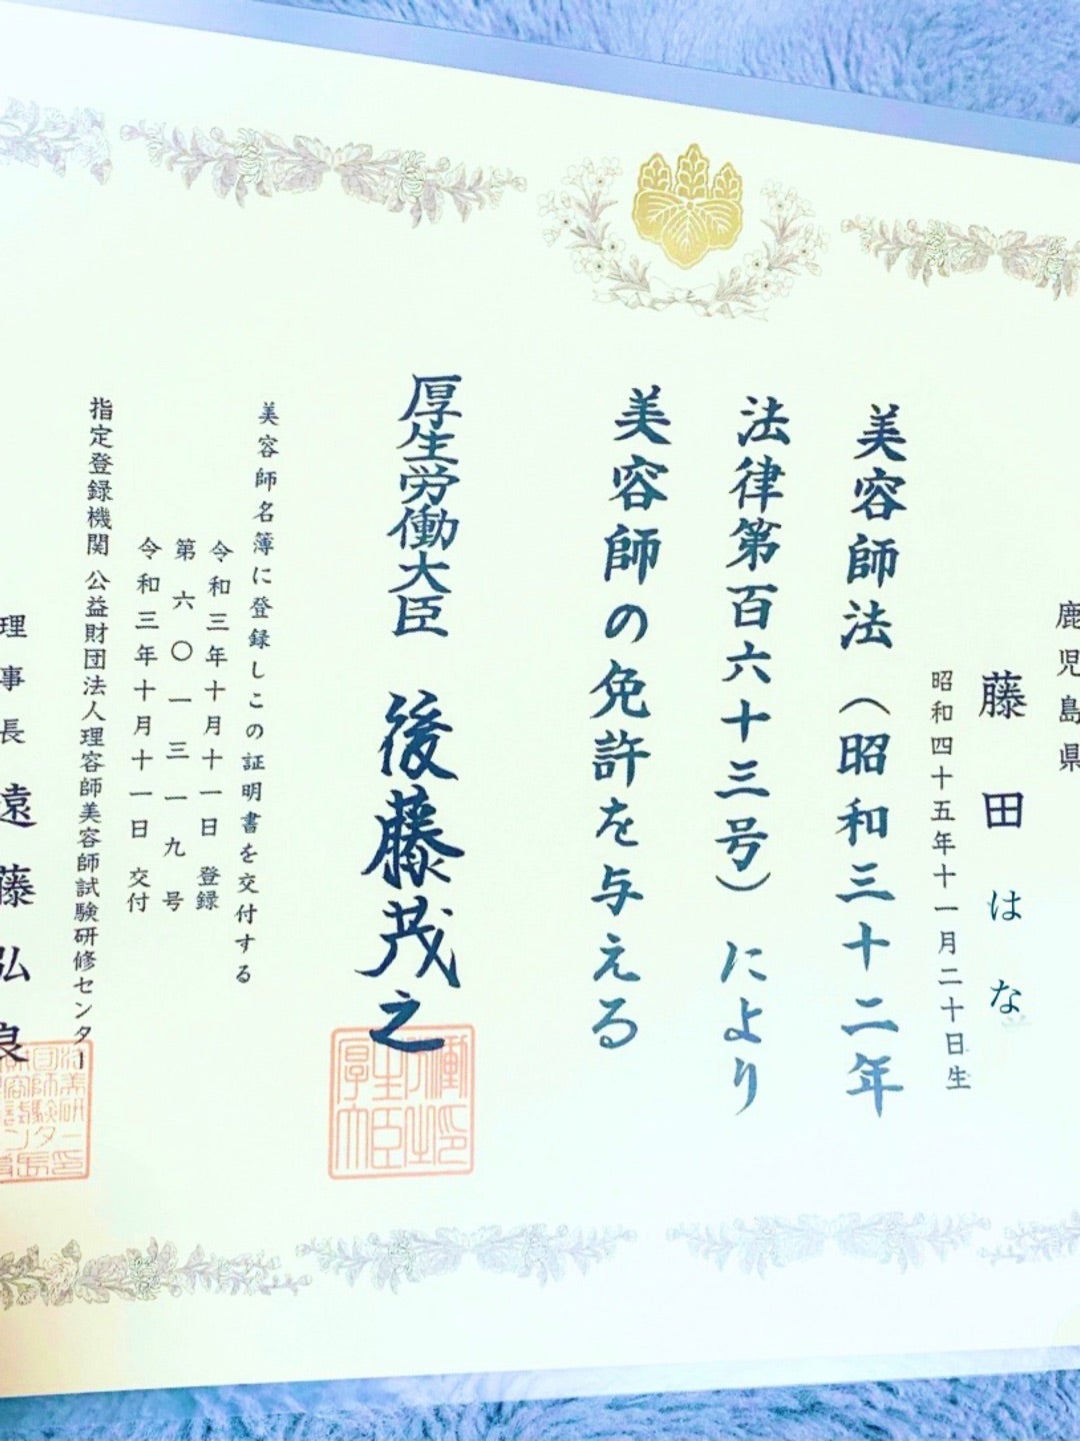 鹿児島県
藤田はな
昭和四十五年十一月二十日生
美容師法（昭和三十二年
法律第百六十三号）により
美容師の免許を与える
厚生労働大臣 後藤茂之
美容師名簿に登録しこの証明書を交付する
令和三年十月十一日 登録
第六〇一三一九号
令和三年十月十一日 交付
指定登録機関 公益財団法人理容師美容師試験研修センター
理事長 遠藤弘良